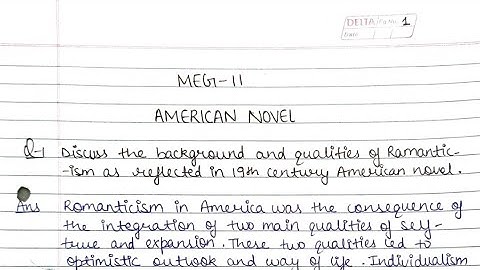 DELTA Pg No. 1
Date / /
MEG-11
AMERICAN NOVEL
Q-1 Discuss the background and qualities of Ramantic-
-ism as reflected in 19th century American novel.
Ans Romanticism in America was the consequence of
the integration of two main qualities of self-
true and expansion. These two qualities led to
optimistic outlook and way of life. Individualism